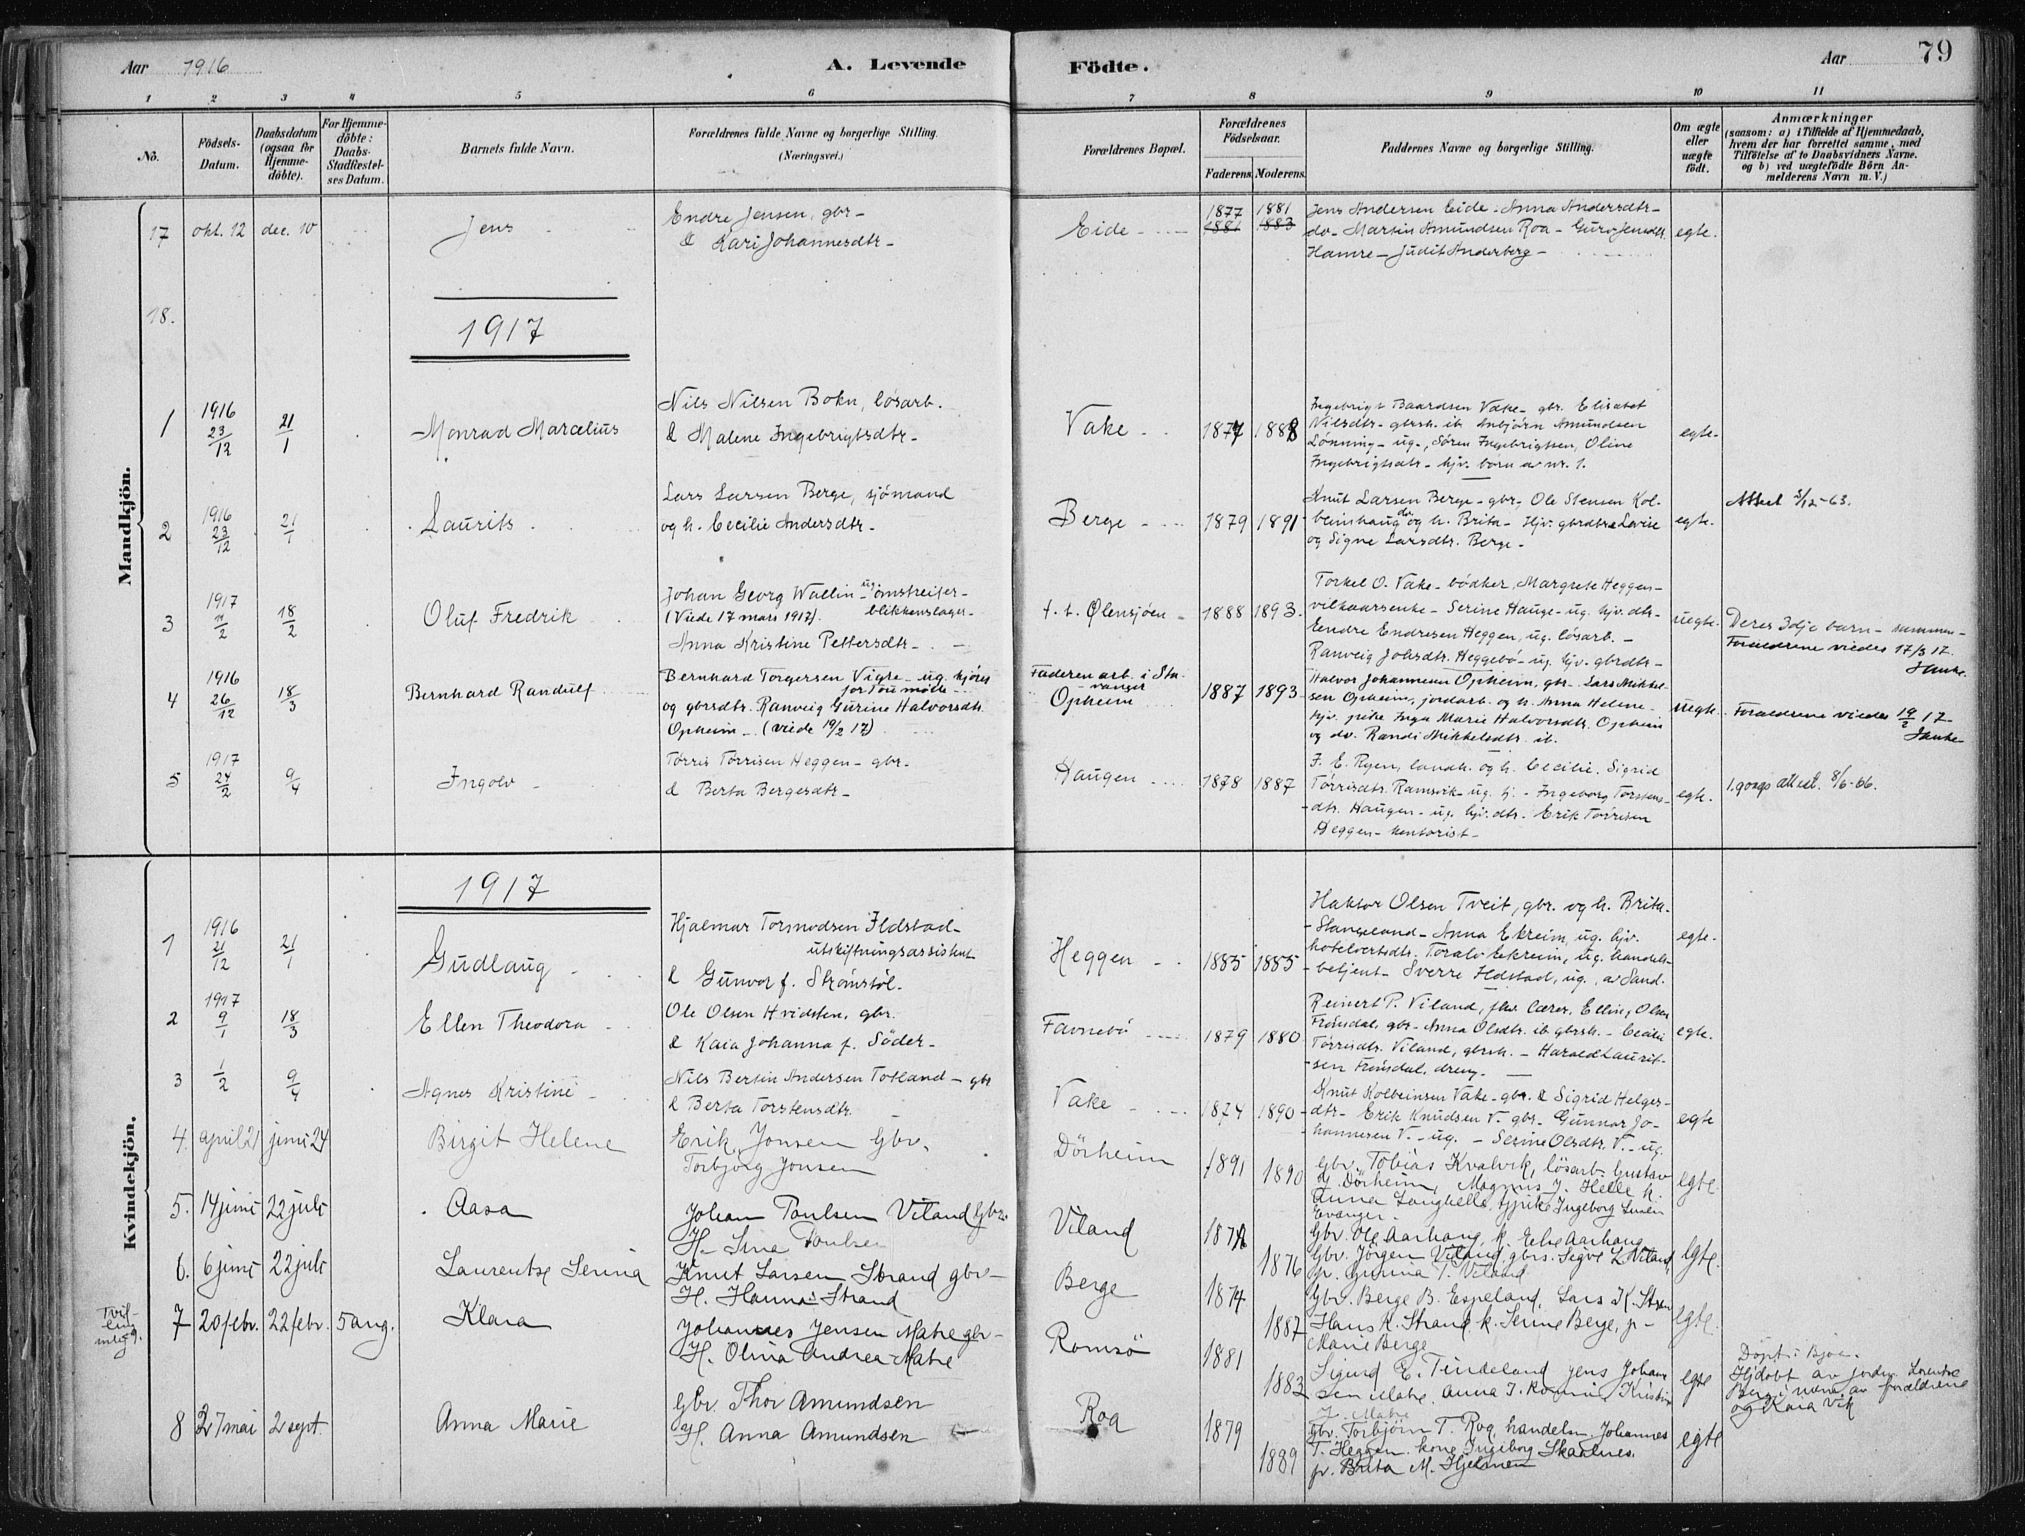 Aar 1916
A. Levende
Födte.
Aar
79
1 2 3 4 5 6 7 8 9 10 11
No.
Födsels-Datum.
Daabsdatum (ogsaa for Hjemme-döbte).
For Hjemme-döbte: Daabs-Stadfæstel-ses Datum.
Barnets fulde Navn.
Forældrenes fulde Navne og borgerlige Stilling.
(Næringsvei.)
Forældrenes Bopæl.
Forældrenes Födselsaar.
Faderens. Moderens.
Faddernes Navne og borgerlige Stilling.
Om ægte eller uægte födt.
Anmærkninger
(saasom: a) i Tilfælde af Hjemmedaab,
hvem der har forrettet samme, med
Tilföielse af to Daabsvidners Navne.
og b) ved uægtefödte Börn An-
melderens Navn m. V.)
Mandkjön.
17 okt. 12 dec. 10
Jens
Endre Jensen, gbr-
& Kari Johannesdtr-
Eide
1877 1881
1881 1883
Jens Andersen Eide - Anna Andersdtr-
do- Martin Amundsen Roa - Guro Jensdtr.
Hamre - Judit Anderberg -
egte.
18.
1917
1
1916 23/12
21/1
Monrad Marcelius
Nils Nilsen Bokn, løsarb.
& Malene Ingebrigtsdtr-
Vake
1877 1888
Ingebrigt Baardsen Vake- gbr. Elisabet
Nilsdtr- gbrsk. ib Anbjørn Amundsen
Lønning - ug., Søren Ingebrigtsen, Oline
Ingebrigtsdtr- hjv. born av nr. 1.
egte-
2
1916 23/12
21/1
Laurits
Lars Larsen Berge, sjömand
og h. Cecilie Andersdtr-
Berge
1879 1891
Knut Larsen Berge - gbr, Ole Stensen Kol-
beinshaug do og h. Brita - Hjv. gbrdtre Lovise
og Signe Larsdtr. Berge -
egte.
Attest 3/12-63.
3
1917 11/2
18/2
Oluf Fredrik
Johan Georg Wallin - ug omstreifer-
(Viede 17 mars 1917). blikkenslager-
Anna Kristine Pettersdtr-
f. t. Ølensjøen -
1888 1893
Torkel O. Vake - bødker, Margrete Heggen-
vilkaarsenke - Serine Hauge - ug. hjv. dtr-
Endre Endresen Heggen, ug. løsarb. -
Ranveig Johsdtr. Heggebö - ug. hjv. gbrdtr-
uegte.
Deres 3dje barn - sammen -
Forældrene viedes 17/3 17.
4
1916 26/12
18/3
Bernhard Randulf
Bernhard Torgersen Vigre - ug. kjörer
for Tou mölle
og gbrsdtr. Ranveig Gurine Halvorsdtr.
Opheim - (viede 19/2 17)
Faderen arb. i Sta-
vanger
Opheim
1887 1893
Halvor Johannesen Opheim, gbr- Lars Mikkel-
sen Opheim, jordarb. og h. Anna Helene -
hjv. pike Inga Marie Halvorsdtr. Opheim
og do. Randi Mikkelsdtr. ib.
uegte.
Forældrene viedes 19/2 17-
5
1917 24/2
9/4
Ingolv
Törris Törrisen Heggen - gbr.
& Berta Bergesdtr-
Haugen
1878 1887
F. E. Ryen, landh. og h. Cecilie. Sigrid
Törrisdtr. Ramsvik - ug. hj. - Ingeborg Torstens-
dtr. Haugen - ug. hjv. dtr. - Erik Törrisen
Heggen - kontorist -
egte.
1. gangs attest. 8/6-66.
Kvindekjön.
1917
1
1916 21/12
21/1
Gudlaug
Hjalmar Tormodsen Ildstad-
utskiftningsassistent
& Gunvor f. Strömstöl.
Heggen
1885 1885
Haktor Olsen Tveit, gbr. og h. Brita-
Stangeland - Anna Ekreim, ug. hjv.
hotelvertsdtr. Toralv Eekreim, ug. handels-
betjent - Sverre Ildstad, ug., av Sand.
egte.
2
1917 9/1
18/3
Ellen Theodora
Ole Olsen Hvidsten, gbr.
& Kaia Johanna f. Söder-
Favnebö
1879 1880
Reinert P. Viland, fhv. lærer, Elling Olsen
Frönsdal, gbr - Anna Olsdtr. ib gbrsk. - Cecilie
Törrisdtr. Viland, gbrsk. - Harald Laurit-
sen Frönsdal, dreng.
egte.
3
1/2
9/4
Agnes Kristine
Nils Bertin Andersen Totland - gbr
& Berta Torstensdtr.
Vake
1874 1890
Knut Kolbeinsen Vake - gbr. & Sigrid Helges-
dtr- Erik Knudsen V. gbr. Gunnar Jo-
hannesen V. - ug. - Serine Olsdtr. V. - ug.
egte
4. april 21 juni 24
Birgit Helene
Erik Jonsen Gbr.
Torbjörg Jonsen
Dörheim
1891 1890
Gbr. Tobias Kvalvik, lösarb. Gustav
Dörheim, Magnus J. Helle k.
Anna Langhelle, tjpike Ingeborg
Evanger.
egte.
5. 14 juni 22 juli
Aasa
Johan Poulsen Viland Gbr.
H. Sina Poulsen
Viland
1878 1876
Gbr. Ole Aarhaug, k. Else Aarhaug
Gbr. Jörgen Viland, gbrs. Sigve L. Viland
p. Gurina T. Viland
egte.
6. 6 juni 22 juli
Laurentse Serina
Knut Larsen Strand gbr-
H. Hanna Strand
Berge
1874 1887
Gbr. Berge B. Espeland, Lars K. Strand
Hans K. Strand k. Serine Berge, p-
Marie Berge
egte.
7 20 febr. 22 febr. 5 aug.
Klara
Johannes Jensen Matre gbr-
H. Olina Andrea Matre
Romsö
1881 1883
Sigurd E. Tindeland Jens Johan-
sen Matre, Anna J. Romsö, Kristine
J. Matre
egte
Döpt i Bjoa.
Hjdöbt av jordm. Lorentse
Berg i nærv. av forældrene
og Kaia Vik
8 27 mai 2 sept.
Anna Marie
Gbr. Thor Amundsen
H. Anna Amundsen
Roa
1879 1889
Gbr. Torbjörn T. Roa, handelsm. Johannes
T. Heggen, kone Ingeborg Skaalnes.
p. Brita M. Hjelmen
egte